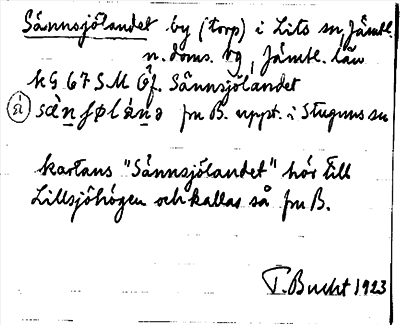 Sännsjölandet by (torp) i Lits sn, Jämtl.
n. doms. sg, Jämtl. län
k G 67 S M Öf. Sännsjölandet
fr B. uppt. i Stuguns sn
kartans "Sännsjölandet" hör till
Lillsjöhögen och kallas så fr B.
T. Bucht 1923